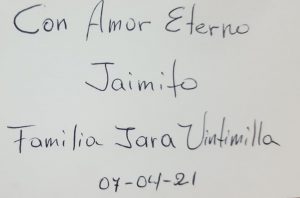 Con Amor Eterno
Jaimito
Familia Jara Vintimilla
07-04-21